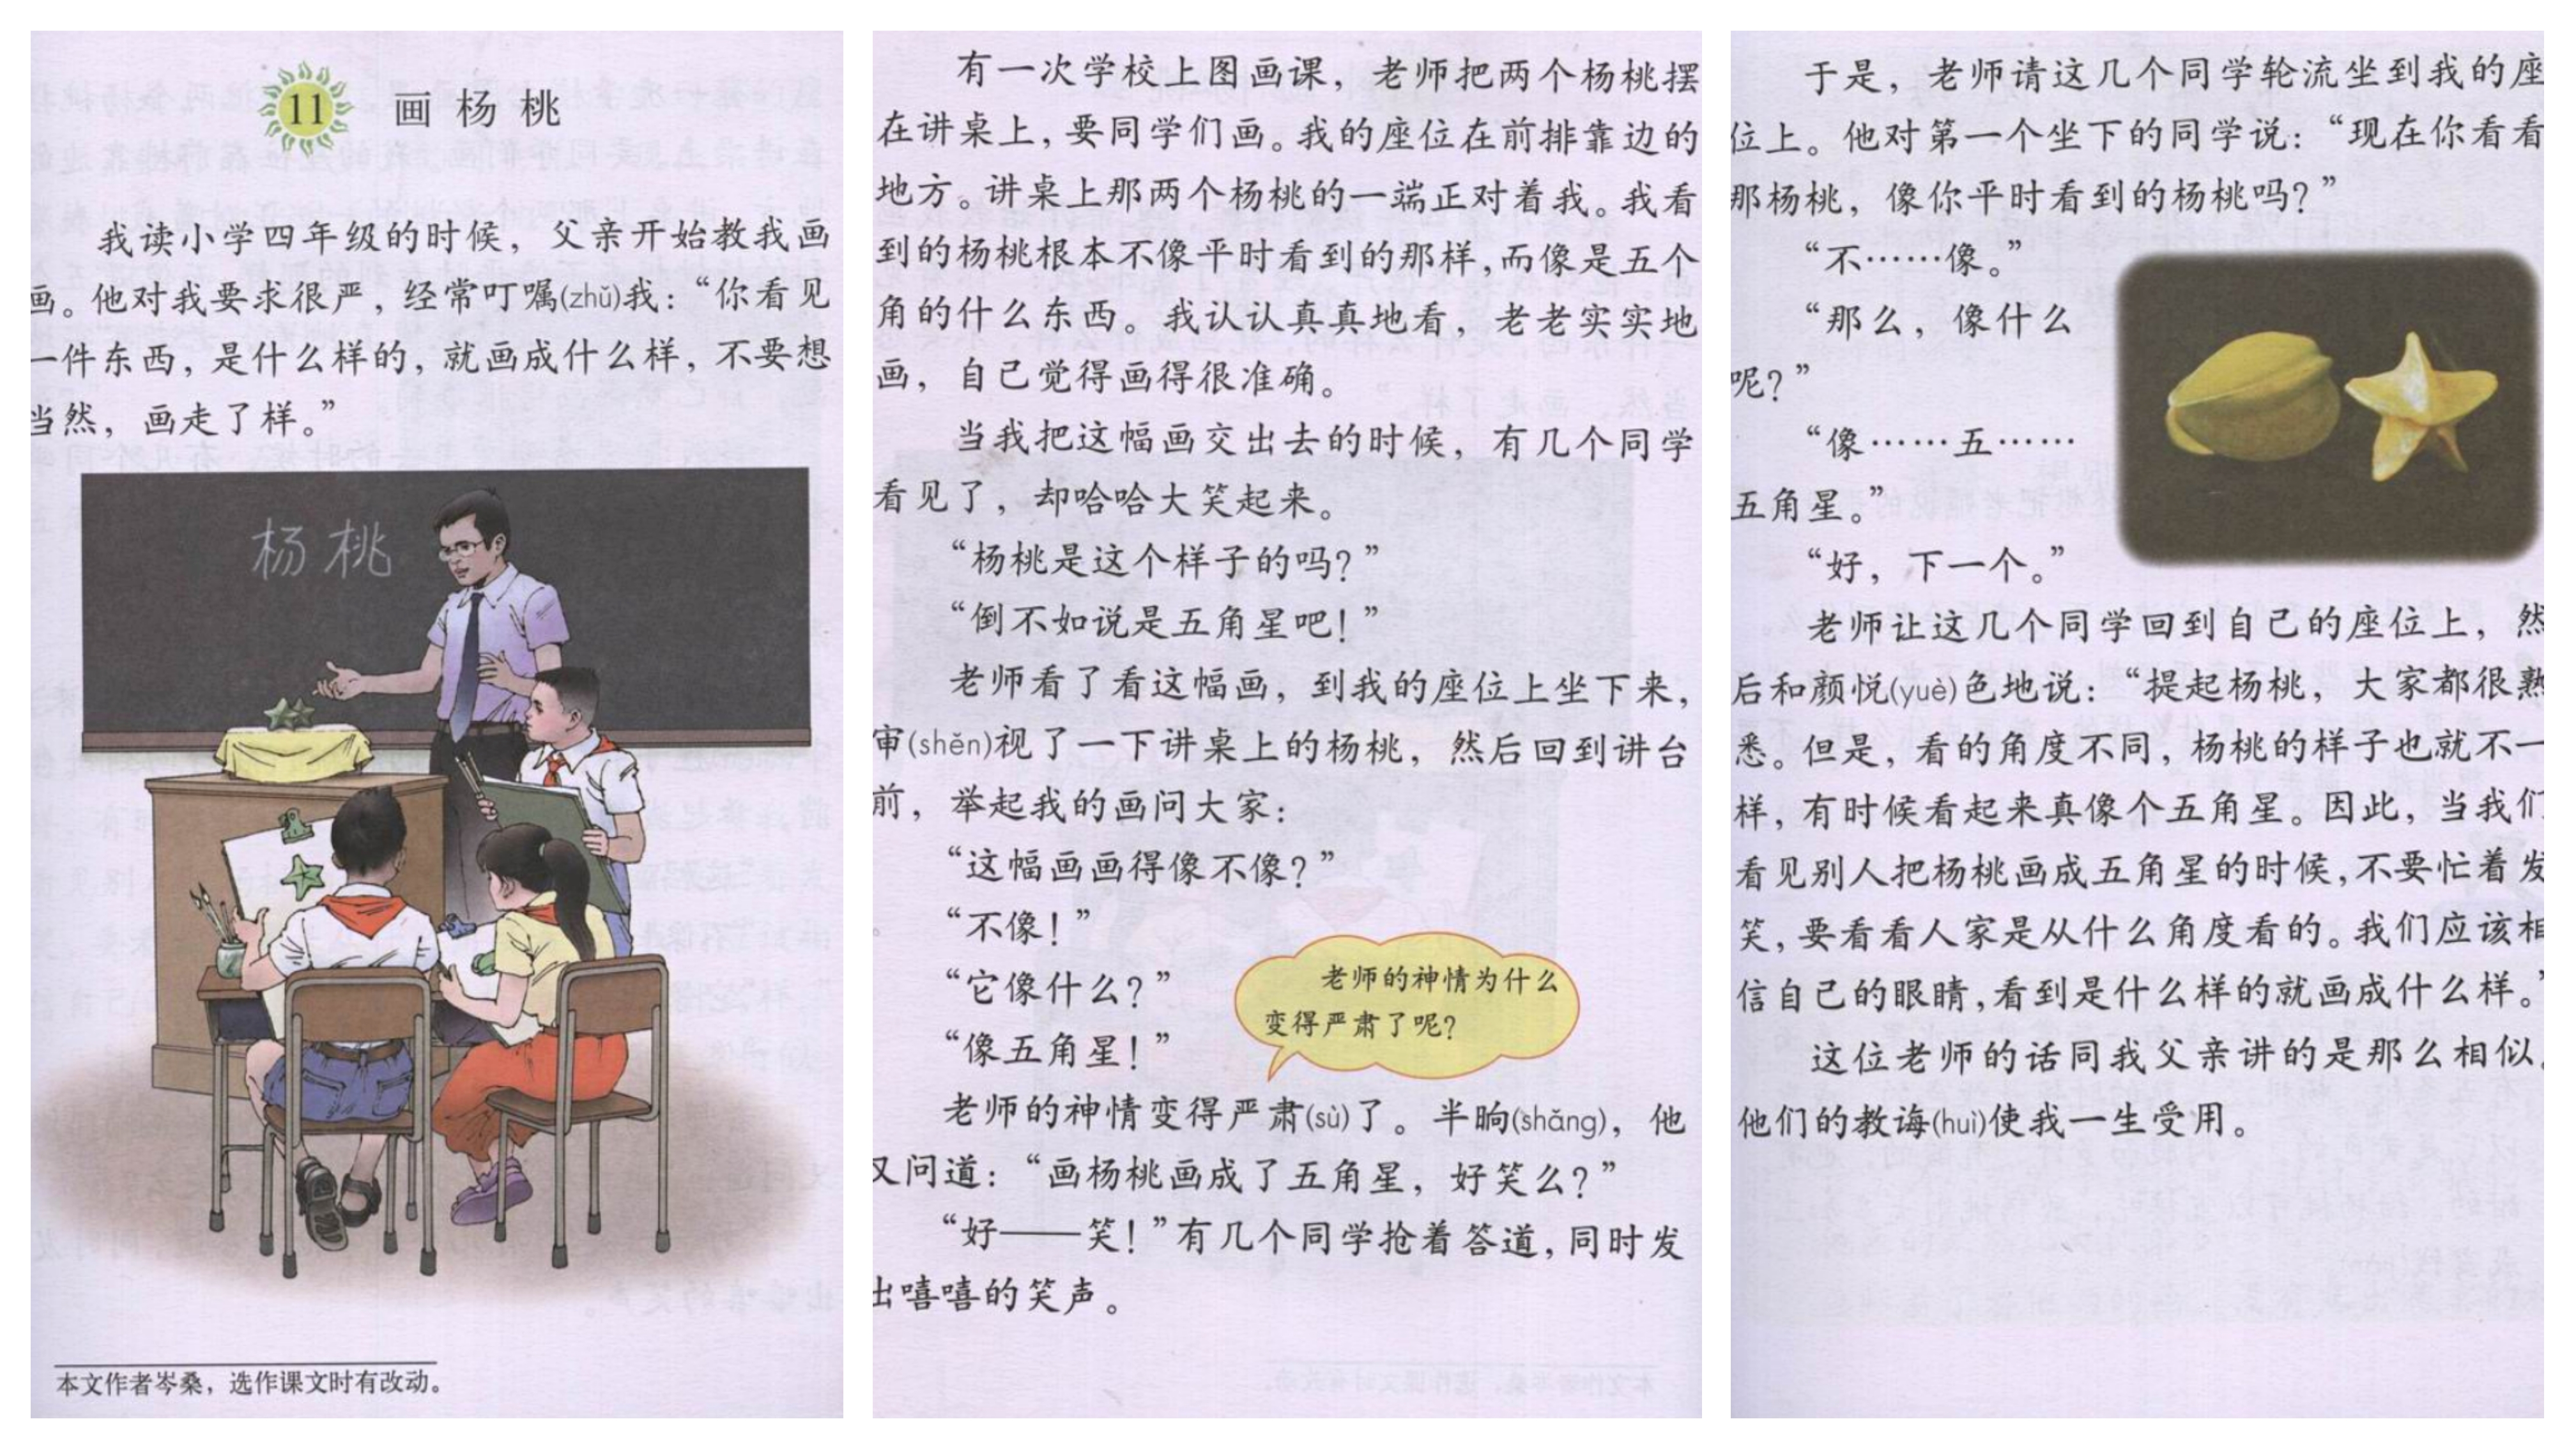 11 画杨桃
我读小学四年级的时候，父亲开始教我画
画。他对我要求很严，经常叮嘱(zhǔ)我：“你看见
一件东西，是什么样的，就画成什么样，不要想
当然，画走了样。”
杨桃
本文作者岑桑，选作课文时有改动。
有一次学校上图画课，老师把两个杨桃摆
在讲桌上，要同学们画。我的座位在前排靠边的
地方。讲桌上那两个杨桃的一端正对着我。我看
到的杨桃根本不像平时看到的那样，而像是五个
角的什么东西。我认认真真地看，老老实实地
画，自己觉得画得很准确。
当我把这幅画交出去的时候，有几个同学
看见了，却哈哈大笑起来。
“杨桃是这个样子的吗？”
“倒不如说是五角星吧！”
老师看了看这幅画，到我的座位上坐下来，
审(shěn)视了一下讲桌上的杨桃，然后回到讲台
前，举起我的画问大家：
“这幅画画得像不像？”
“不像！”
“它像什么？”
“像五角星！”
老师的神情为什么
变得严肃了呢？
老师的神情变得严肃(sù)了。半晌(shǎng)，他
又问道：“画杨桃画成了五角星，好笑么？”
“好——笑！”有几个同学抢着答道，同时发
出嘻嘻的笑声。
于是，老师请这几个同学轮流坐到我的座
位上。他对第一个坐下的同学说：“现在你看看
那杨桃，像你平时看到的杨桃吗？”
“不……像。”
“那么，像什么
呢？”
“像……五……
五角星。”
“好，下一个。”
老师让这几个同学回到自己的座位上，然
后和颜悦(yuè)色地说：“提起杨桃，大家都很熟
悉。但是，看的角度不同，杨桃的样子也就不一
样，有时候看起来真像个五角星。因此，当我们
看见别人把杨桃画成五角星的时候，不要忙着发
笑，要看看人家是从什么角度看的。我们应该相
信自己的眼睛，看到是什么样的就画成什么样。”
这位老师的话同我父亲讲的是那么相似。
他们的教诲(huì)使我一生受用。